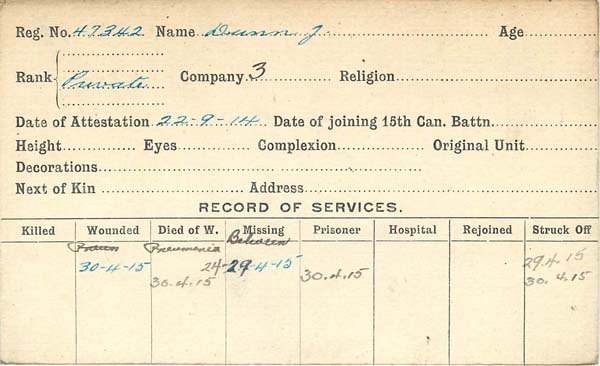 Reg. No. 47342 Name Dunn J. Age
Rank Private Company 3 Religion
Date of Attestation 22-9-14 Date of joining 15th Can. Battn.
Height Eyes Complexion Original Unit
Decorations
Next of Kin Address
RECORD OF SERVICES.
Killed Wounded Died of W. Missing Prisoner Hospital Rejoined Struck Off
Pneum Pneumonia Between
30-4-15 24-29-4-15 29.4.15
30.4.15 30.4.15 30.4.15